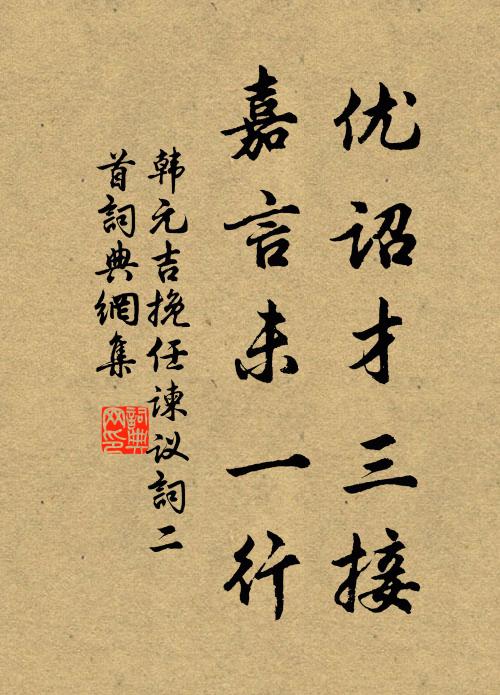 优诏才三接
嘉言未一行
韩元吉挽任谏议詞二
首詞典網集
詞典
网印